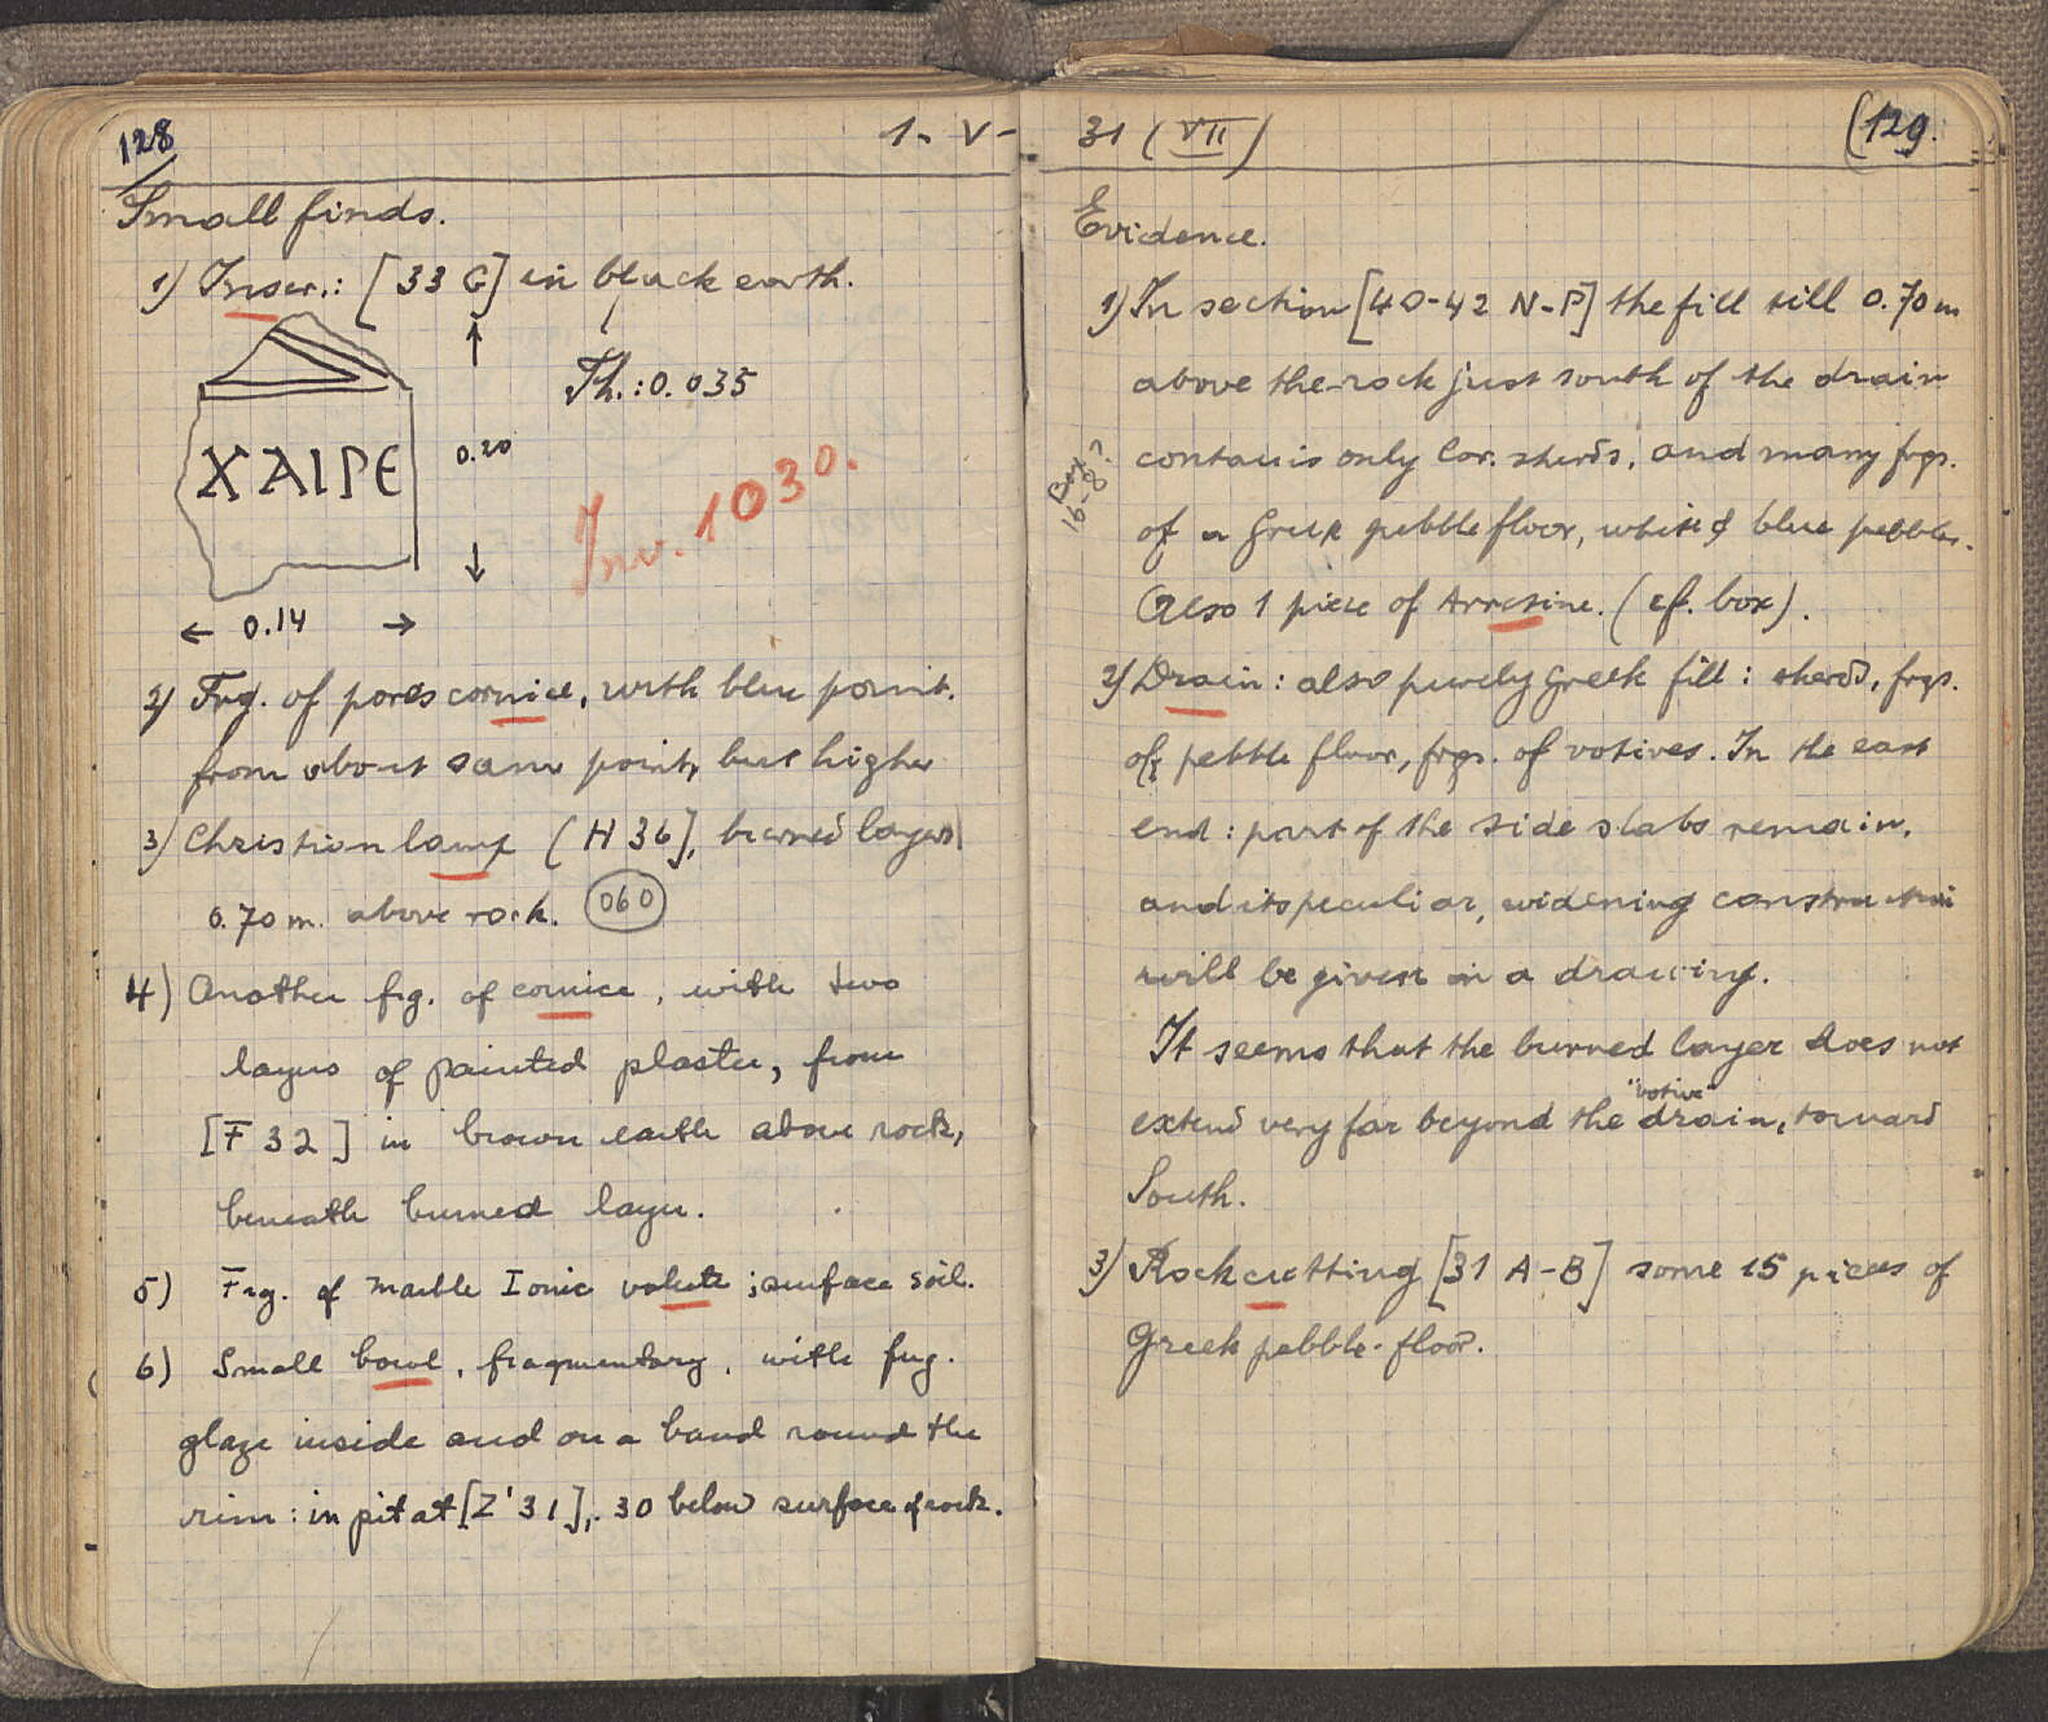 128
1 - V -
Small finds.
1) Inscr.: [33 G] in black earth.
Th.: 0.035
ΧΑΙΡΕ
0.20
Inv. 1030.
← 0.14 →
2) Frg. of poros cornice, with blue paint.
from about same point, but higher
3) Christian lamp [H 36], burned layer
0.70 m. above rock. 060
4) Another frg. of cornice, with two
layers of painted plaster, from
[F 32] in brown earth above rock,
beneath burned layer.
5) Frg. of marble Ionic volute; surface soil.
6) Small bowl, fragmentary, with frg.
glaze inside and on a band round the
rim: in pit at [Z' 31], .30 below surface of rock.
31 (VII)
(129.
Evidence.
1) In section [40-42 N-P] the fill till 0.70 m
above the rock just south of the drain
contains only Cor. sherds, and many frgs.
Box
16-8?
of a Greek pebble floor, white & blue pebbles.
Also 1 piece of Arretine. (cf. box).
2) Drain: also purely Greek fill: sherds, frgs.
of pebble floor, frgs. of votives. In the east
end: part of the side slabs remain,
and its peculiar, widening construction
will be given in a drawing.
It seems that the burned layer does not
"votive"
extend very far beyond the drain, toward
South.
3) Rockcutting [31 A-B] some 15 pieces of
Greek pebble-floor.